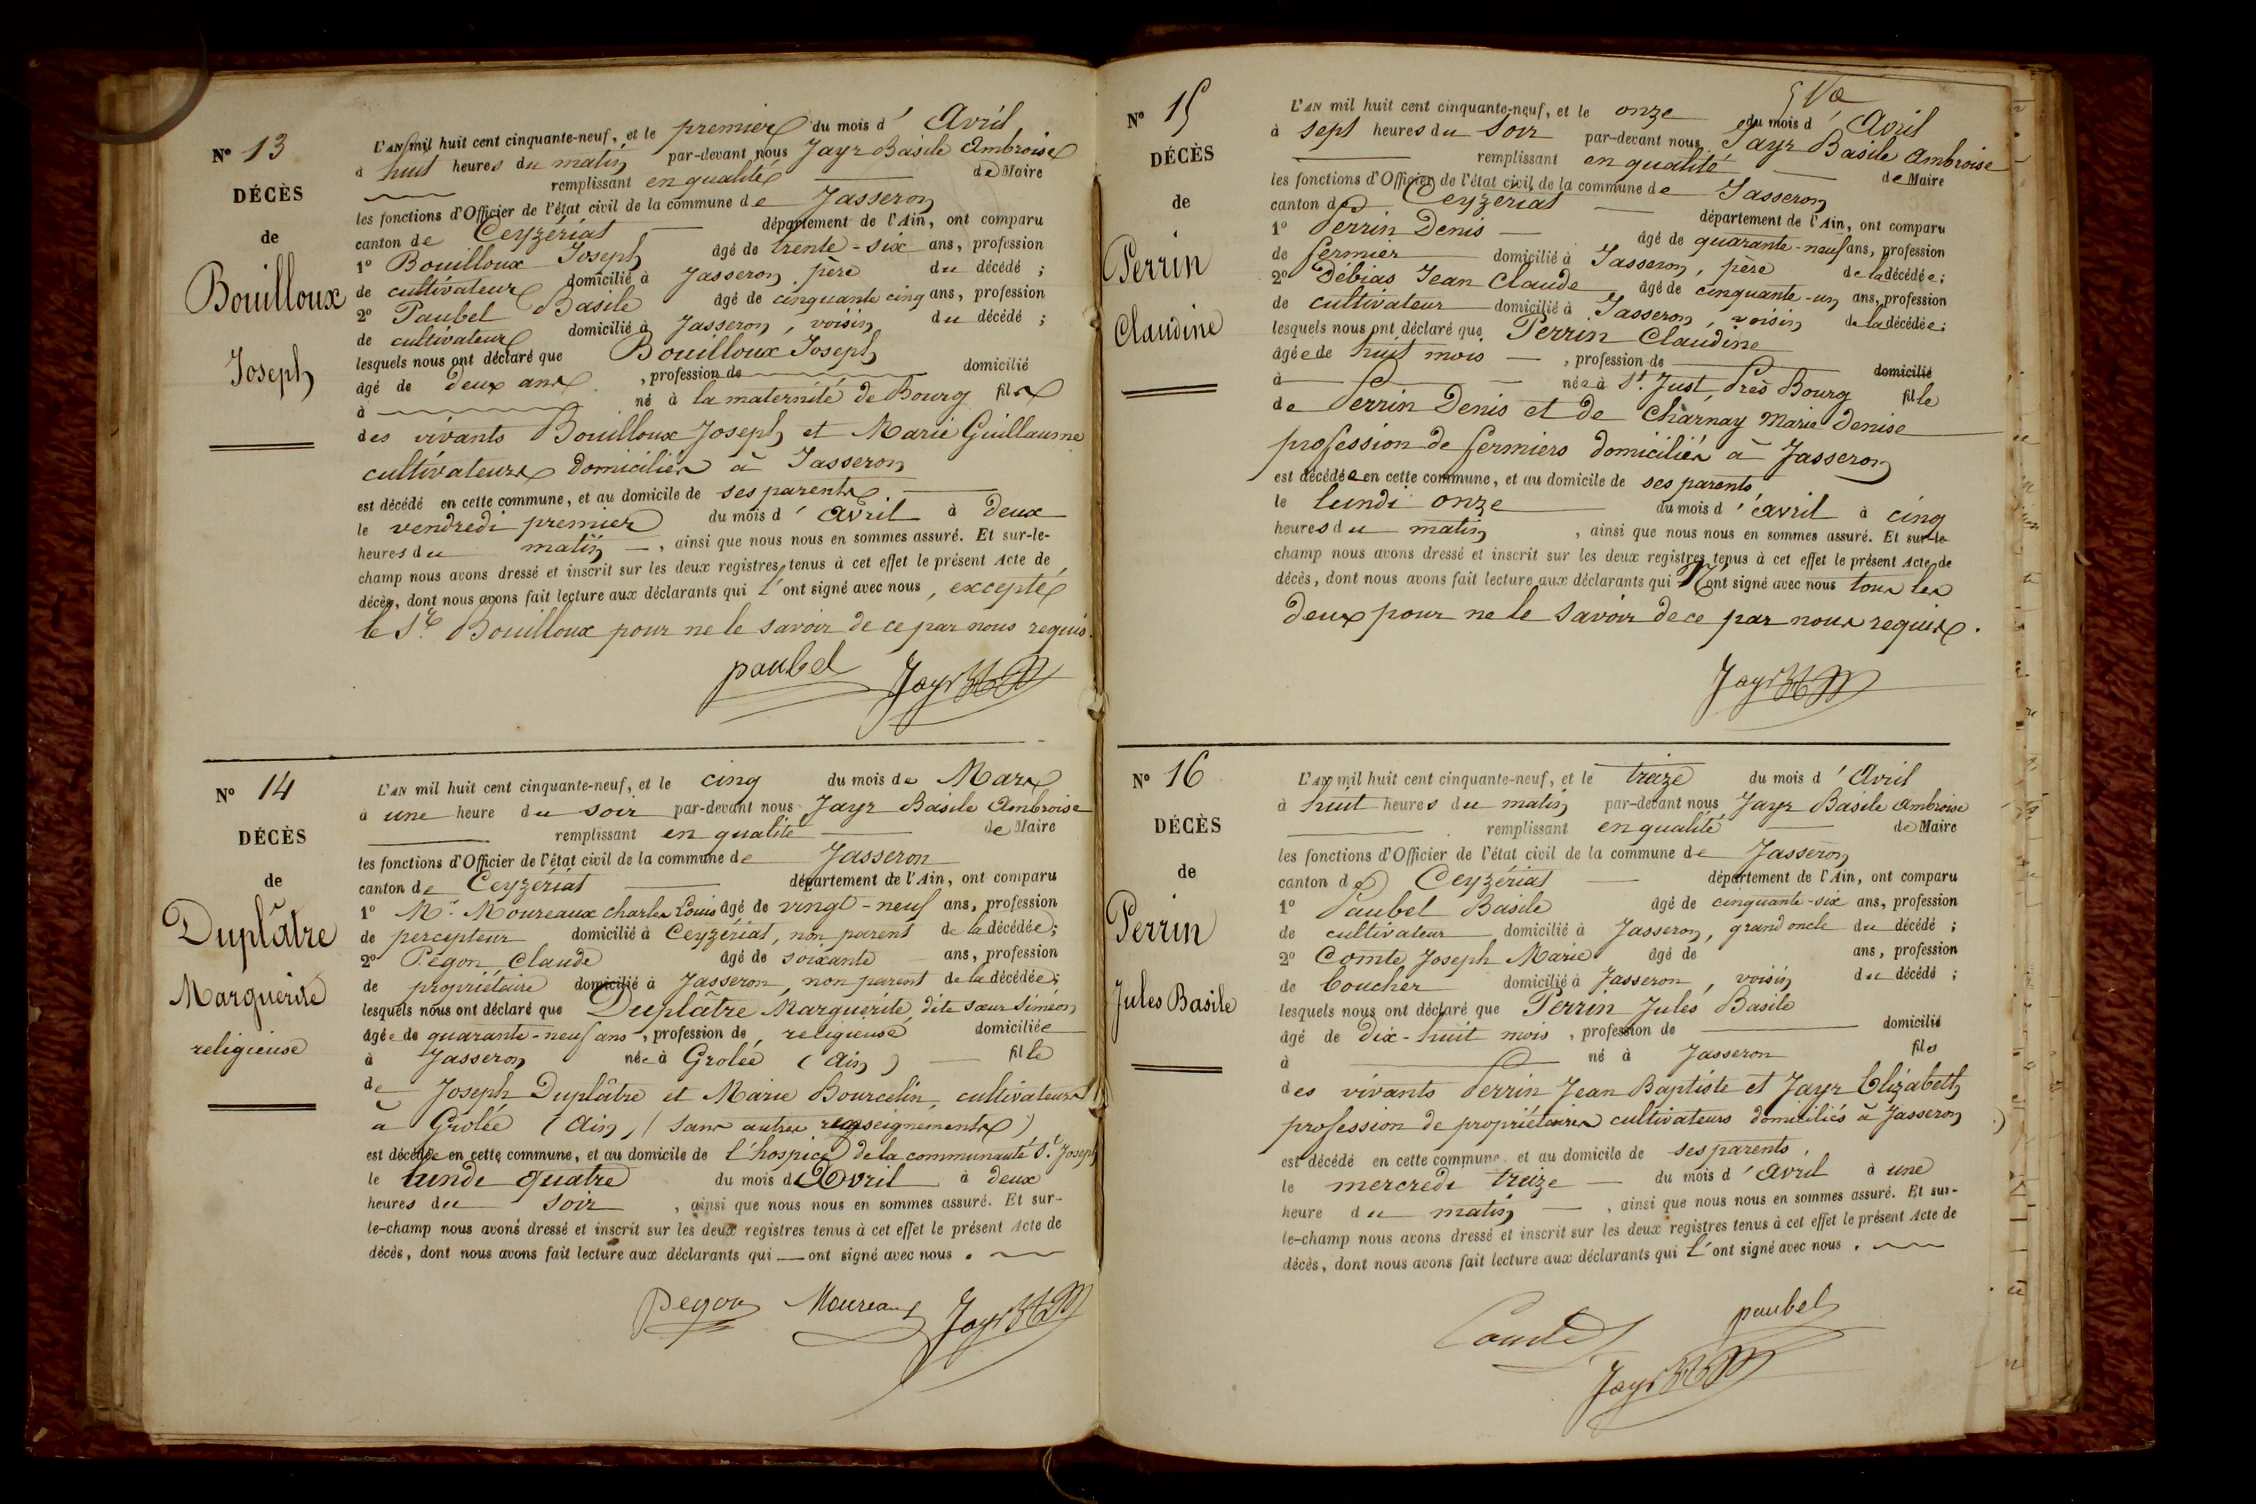 N° 13
DÉCÈS
de
Bouilloux
Joseph
L'AN mil huit cent cinquante-neuf, et le premier du mois d' Avril
à huit heures du matin par-devant nous Jayr Basile Ambroise
remplissant en qualité de Maire
les fonctions d'Officier de l'état civil de la commune de Jasseron
canton de Ceyzériat département de l'Ain, ont comparu
1° Bouilloux Joseph âgé de trente-six ans, profession
de cultivateur domicilié à Jasseron, père du décédé ;
2° Paubel Basile âgé de cinquante cinq ans, profession
de cultivateur domicilié à Jasseron, voisin du décédé ;
lesquels nous ont déclaré que Bouilloux Joseph
âgé de deux ans , profession de domicilié
à né à la maternité de Bourg fils
des vivants Bouilloux Joseph et Marie Guillaume
cultivateurs domiciliés à Jasseron
est décédé en cette commune, et au domicile de ses parents
le vendredi premier du mois d' avril à deux
heures du matin , ainsi que nous nous en sommes assuré. Et sur-le-
champ nous avons dressé et inscrit sur les deux registres tenus à cet effet le présent Acte de
décès, dont nous avons fait lecture aux déclarants qui l'ont signé avec nous, excepté
le Sr. Bouilloux pour ne le savoir de ce par nous requis.
paubel Jayr
N° 14
DÉCÈS
de
Duplâtre
Marguerite
religieuse
L'AN mil huit cent cinquante-neuf, et le cinq du mois de Mars
à une heure du soir par-devant nous Jayr Basile Ambroise
remplissant en qualité de Maire
les fonctions d'Officier de l'état civil de la commune de Jasseron
canton de Ceyzériat département de l'Ain, ont comparu
1° Mr. Moureaux charles Louis âgé de vingt-neuf ans, profession
de percepteur domicilié à Ceyzériat, non parent de la décédée;
2° Pégon Claude âgé de soixante ans, profession
de propriétaire domicilié à Jasseron, non parent de la décédée;
lesquels nous ont déclaré que Duplâtre Marguerite, dite sœur Siméon
âgée de quarante-neuf ans, profession de religieuse domiciliée
à Jasseron née à Grolée (Ain) fille
de Joseph Duplâtre et Marie Bourcelin, cultivateurs
à Grolée (Ain) (sans autres renseignements)
est décédée en cette commune, et au domicile de l'hospice de la communauté St. Joseph
le lundi quatre du mois d'Avril à deux
heures du soir , ainsi que nous nous en sommes assuré. Et sur-
le-champ nous avons dressé et inscrit sur les deux registres tenus à cet effet le présent Acte de
décès, dont nous avons fait lecture aux déclarants qui ont signé avec nous.
Pegon Moureaux Jayr
N° 15
DÉCÈS
de
Perrin
Claudine
L'AN mil huit cent cinquante-neuf, et le onze du mois d' Avril
à sept heures du soir par-devant nous Jayr Basile Ambroise
remplissant en qualité de Maire
les fonctions d'Officier de l'état civil de la commune de Jasseron
canton de Ceyzériat département de l'Ain, ont comparu
1° Perrin Denis âgé de quarante-neuf ans, profession
de fermier domicilié à Jasseron, père de la décédée;
2° Débias Jean Claude âgé de cinquante-un ans, profession
de cultivateur domicilié à Jasseron, voisin de la décédée;
lesquels nous ont déclaré que Perrin Claudine
âgée de huit mois , profession de domicilié
à née à St. Just, Près Bourg fille
de Perrin Denis et de Charnay Marie Denise
profession de fermiers domiciliés à Jasseron
est décédée en cette commune, et au domicile de ses parents
le lundi onze du mois d' avril à cinq
heures du matin , ainsi que nous nous en sommes assuré. Et sur-le-
champ nous avons dressé et inscrit sur les deux registres tenus à cet effet le présent Acte de
décès, dont nous avons fait lecture aux déclarants qui N'ont signé avec nous tous les
deux pour ne le savoir de ce par nous requis.
Jayr
N° 16
DÉCÈS
de
Perrin
Jules Basile
L'AN mil huit cent cinquante-neuf, et le treize du mois d' Avril
à huit heures du matin par-devant nous Jayr Basile Ambroise
remplissant en qualité de Maire
les fonctions d'Officier de l'état civil de la commune de Jasseron
canton de Ceyzériat département de l'Ain, ont comparu
1° Paubel Basile âgé de cinquante-six ans, profession
de cultivateur domicilié à Jasseron, grand oncle du décédé ;
2° Comte Joseph Marie âgé de ans, profession
de boucher domicilié à Jasseron, voisin du décédé ;
lesquels nous ont déclaré que Perrin Jules Basile
âgé de dix-huit mois , profession de domicilié
à né à Jasseron fils
des vivants Perrin Jean Baptiste et Jayr Elizabeth
profession de propriétaires cultivateurs domiciliés à Jasseron
est décédé en cette commune, et au domicile de ses parents,
le mercredi treize du mois d' avril à une
heure du matin , ainsi que nous nous en sommes assuré. Et sur-
le-champ nous avons dressé et inscrit sur les deux registres tenus à cet effet le présent Acte de
décès, dont nous avons fait lecture aux déclarants qui l'ont signé avec nous.
Comte paubel
Jayr